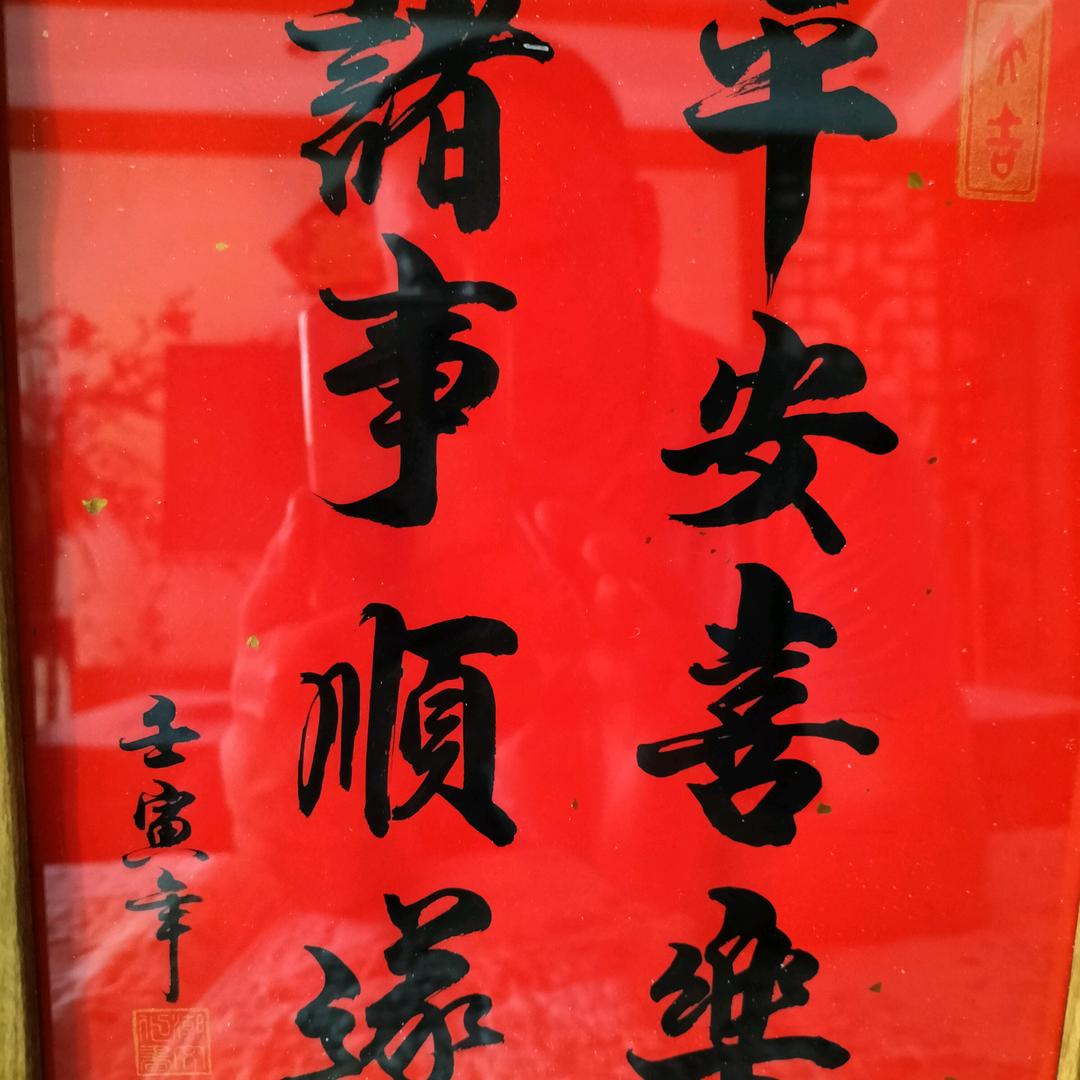 大吉
平安喜樂
諸事順遂
壬寅年